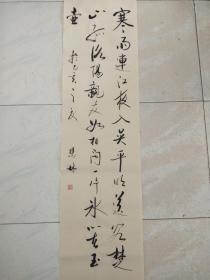 寒雨連江夜入吴平明送客楚
山孤洛陽親友如相問一片冰心在玉
壺
於己亥之夏